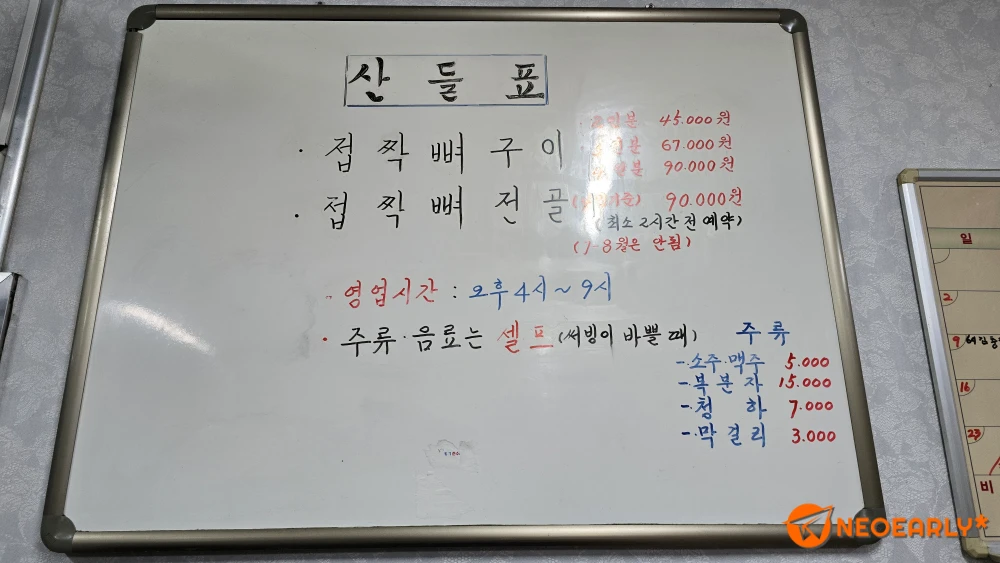 산들표
· 접짝뼈구이 2인분 45.000원
3인분 67.000원
90.000원
· 접짝뼈전골 90.000원
(최소 2시간전 예약)
(7-8월은 안됨)
· 영업시간 : 오후4시~9시
· 주류·음료는 셀프(써빙이 바쁠때)
주류
-·소주·맥주 5.000
-·복분자 15.000
-·청하 7.000
-·막걸리 3.000
일
2
9
16
23
비
NEOEARLY*